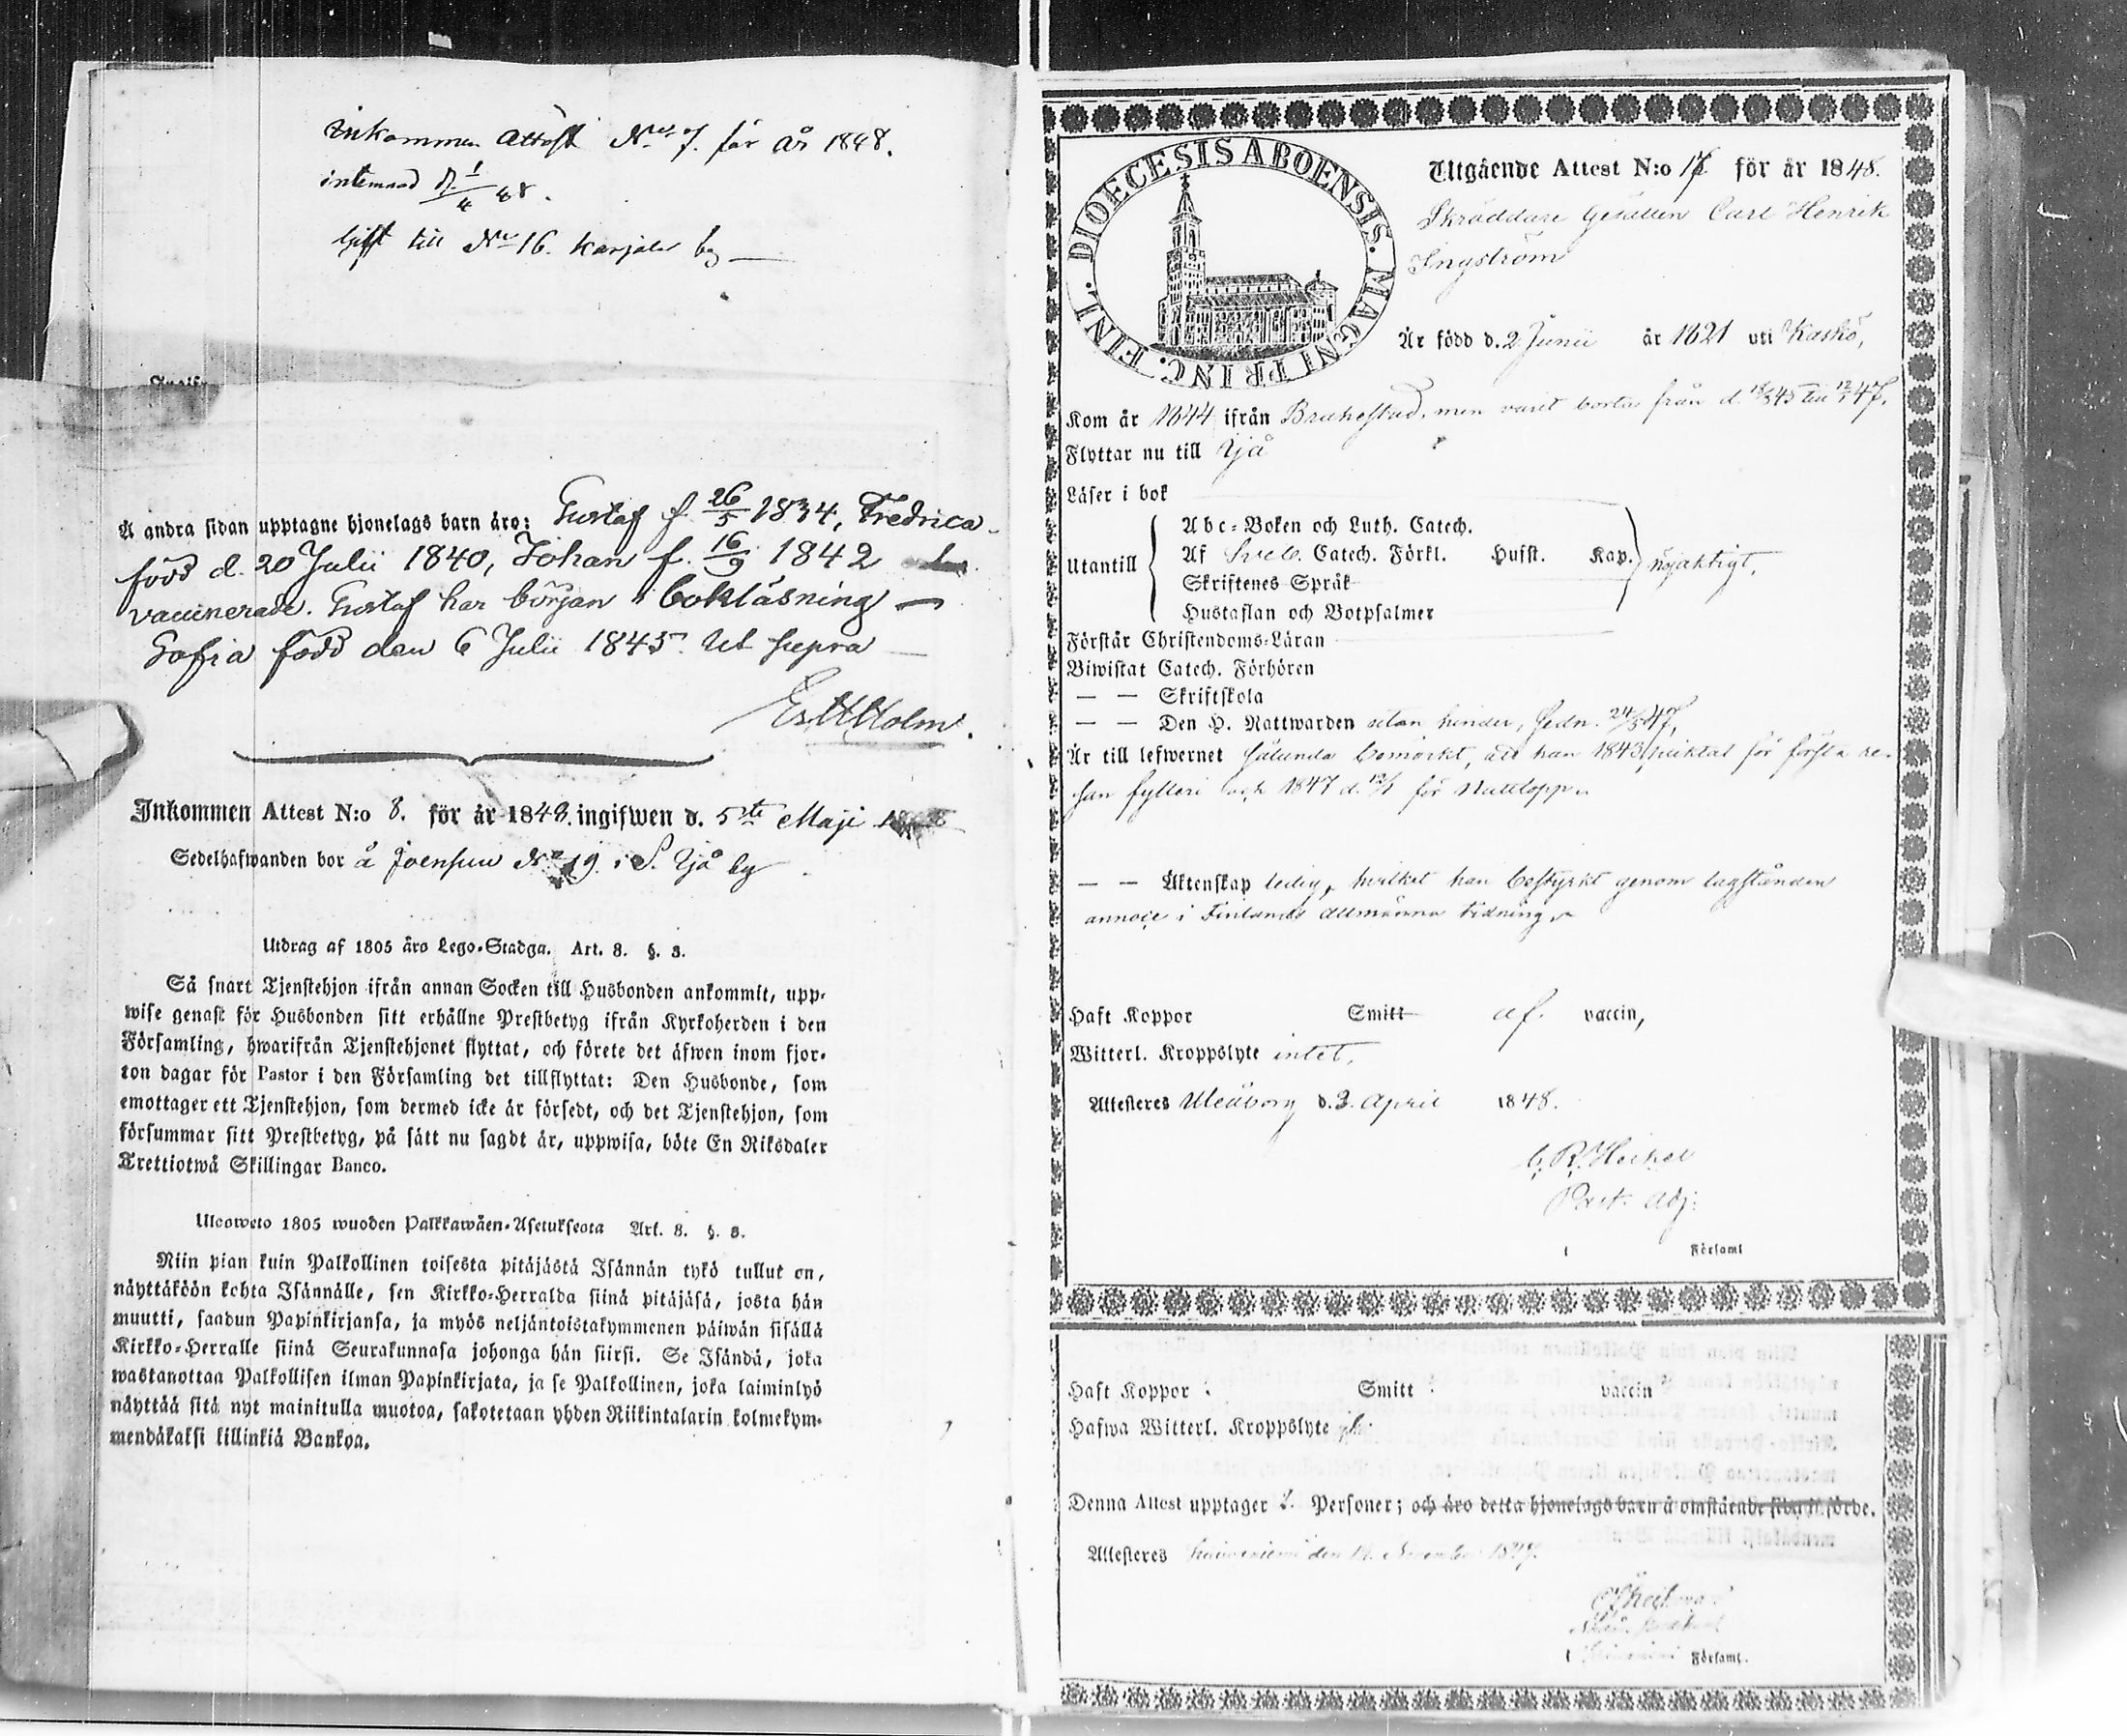 Inkommen Attest No 7. för år 1848.
d. 1/4 48.
till No 16. Karjala by
Å andra sidan upptagne hjonelags barn äro: Gustaf f. 26/5 1834, Fredrica
född d. 20 Julii 1840, Johan f. 16/9 1842
vaccinerade. Gustaf har början i bokläsning —
Sofia född den 6 Julii 1845. Ut supra
Holm.
Inkommen Attest N:o 8. för år 1848. ingifwen d. 5te Maji
Sedelhafwanden bor å Joensuu No 19 i S. Ijå by
Utdrag af 1805 åro Lego-Stadga. Art. 8. §. 3.
Så snart Tjenstehjon ifrån annan Socken till Husbonden ankommit, upp-
wise genast för Husbonden sitt erhållne Prestbetyg ifrån Kyrkoherden i den
Församling, hwarifrån Tjenstehjonet flyttat, och förete det äfwen inom fjor-
ton dagar för Pastor i den Församling det tillflyttat: Den Husbonde, som
emottager ett Tjenstehjon, som dermed icke är försedt, och det Tjenstehjon, som
försummar sitt Prestbetyg, på sätt nu sagdt är, uppwisa, böte En Riksdaler
Trettiotwå Skillingar Banco.
Ulosweto 1805 wuoden Palkkawäen-Asetuksesta Art. 8. §. 3.
Niin pian kuin Palkollinen toisesta pitäjästä Isännän tykö tullut on,
näyttäköön kohta Isännälle, sen Kirkko-Herralda siinä pitäjäsä, josta hän
muutti, saadun Papinkirjansa, ja myös neljäntoistakymmenen päiwän sisällä
Kirkko-Herralle siinä Seurakunnasa johonga hän siirsi. Se Isändä, joka
wastanottaa Palkollisen ilman Papinkirjata, ja se Palkollinen, joka laiminlyö
näyttää sitä nyt mainitulla muotoa, sakotetaan yhden Riikintalarin kolmekym-
mendäkaksi killinkiä Bankoa.
DIOECESIS ABOENSIS. MAGNI PRINC. FINL.
Utgående Attest N:o 17 för år 1848.
Skräddare Gesällen Carl Henrik
Ingström
Är född d. 2 Junii år 1821 uti Kaskö,
Kom år 1844 ifrån Brahestad, men varit borta från d. 18/3 45 till 12/1 47.
Flyttar nu till Ijå
Läser i bok
Utantill
Abc-Boken och Luth. Catech.
Af Sveb. Catech. Förkl. Husst. Kap.
nöjaktigt.
Skriftenes Språk
Hustaflan och Botpsalmer
Förstår Christendoms-Läran
Biwistat Catech. Förhören
— — Skriftskola
— — Den H. Nattwarden utan hinder, sedn. 24/5 47,
Är till lefwernet sålunda bemärkt, att han 1843 pliktat för första re-
san fylleri och 1847 d. 12/1 för
— — Äktenskap ledig, hvilket han bestyrkt genom lagstånden
annoce i Finlands Allmänna tidning.
Haft Koppor Smitt af vaccin,
Witterl. Kroppslyte intet.
Attesteres Uleåborg d. 3. April 1848.
C. R. Heikel
Past. Adj:
i Församl
Haft Koppor Smitt vaccin
Hafwa Witterl. Kroppslyte
Denna Attest upptager 1. Personer; och äro detta hjonelags barn å omstående sida införde.
Attesteres den November 1847.
i Församl.